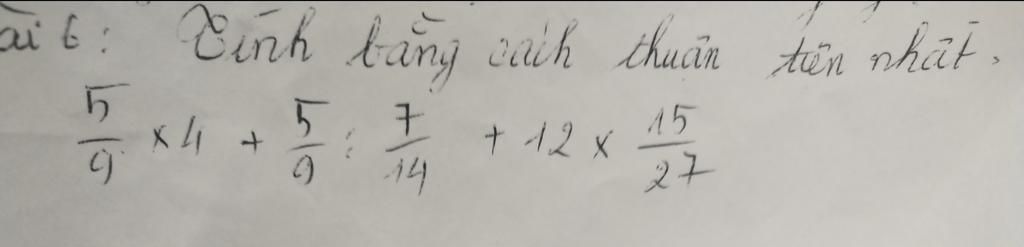 ài 6: Tính bằng cách thuận tiện nhất.
5/9 × 4 + 5/9 : 7/14 + 12 × 15/27